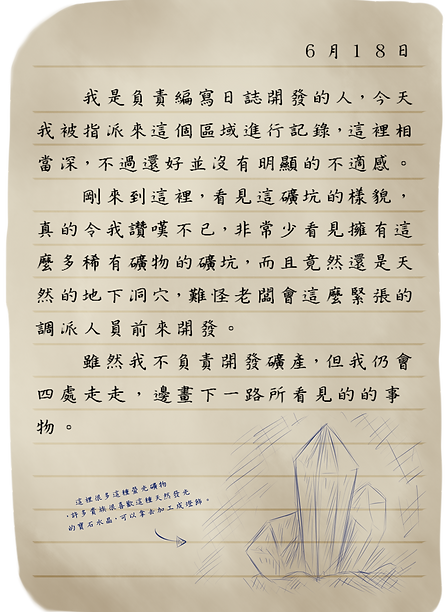 6月18日
我是負責編寫日誌開發的人，今天
我被指派來這個區域進行記錄，這裡相
當深，不過還好並沒有明顯的不適感。
剛來到這裡，看見這礦坑的樣貌，
真的令我讚嘆不已，非常少看見擁有這
麼多稀有礦物的礦坑，而且竟然還是天
然的地下洞穴，難怪老闆會這麼緊張的
調派人員前來開發。
雖然我不負責開發礦產，但我仍會
四處走走，邊畫下一路所看見的的事
物。
這裡很多這種螢光礦物
，許多貴族很喜歡這種天然發光
的寶石水晶，可以拿去加工成燈飾。